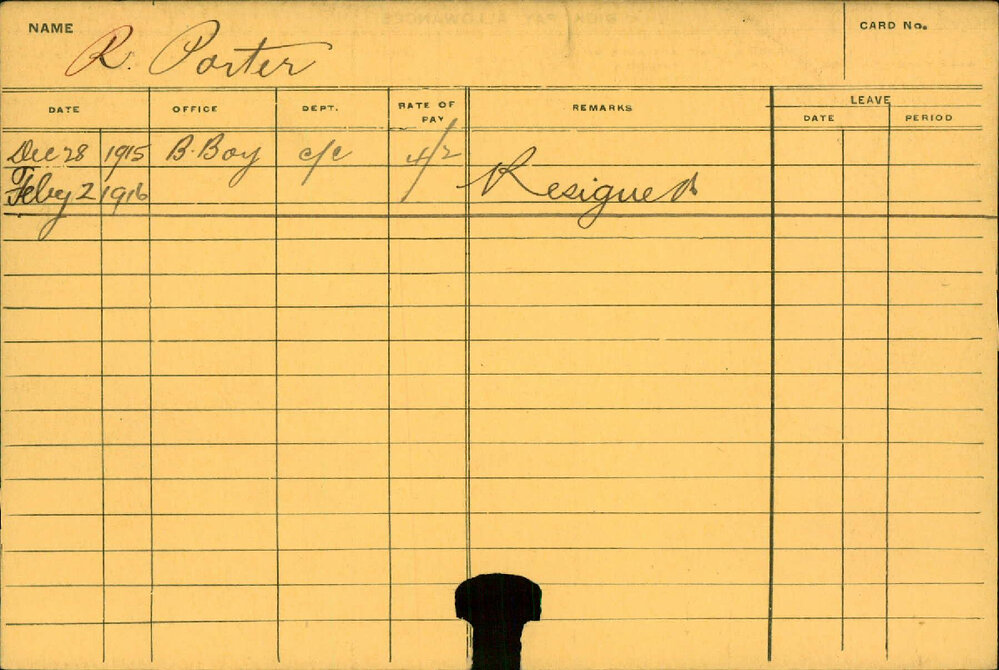 NAME R. Porter CARD No.
DATE OFFICE DEPT. RATE OF PAY REMARKS LEAVE
DATE PERIOD
Dec 28 1915 B. Boy c/c 4/2
Feby 2 1916 Resigned